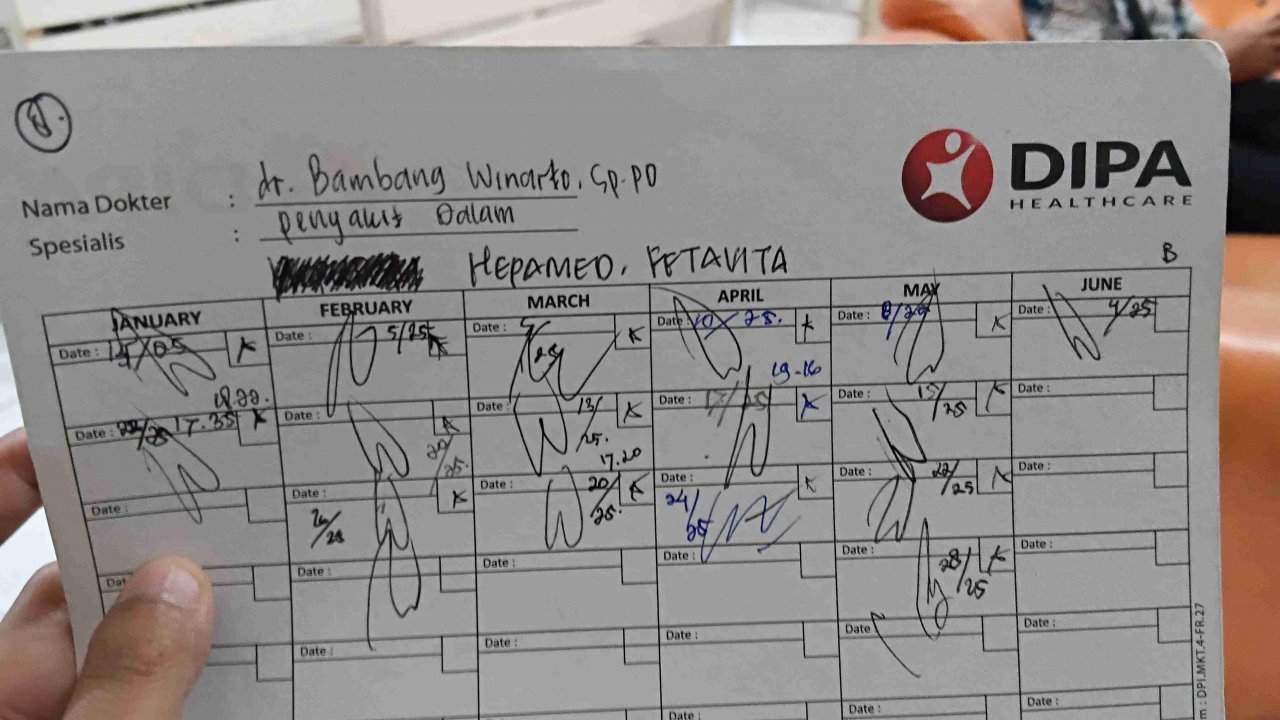 DIPA
HEALTHCARE
Nama Dokter : dr. Bambang Winarto, Sp.PD
Spesialis : Penyakit Dalam
HEPAMED. FETAVITA
B
JANUARY FEBRUARY MARCH APRIL MAY JUNE
Date : Date : 5/25 Date : 5/25 Date : 10/25. Date : 8/25 4/25
19.16
Date : 22/25 17.35 Date : 20/25. Date : 13/25. Date : 17/25 Date : 15/25 Date :
17.20
Date : Date : 26/25 Date : 20/25. Date : 24/25 Date : 22/25 Date :
Date : Date : Date : Date : 28/25 Date :
Date : Date : Date : Date Date :
Date : Date : Date :
: DPI.MKT.4-FR.27